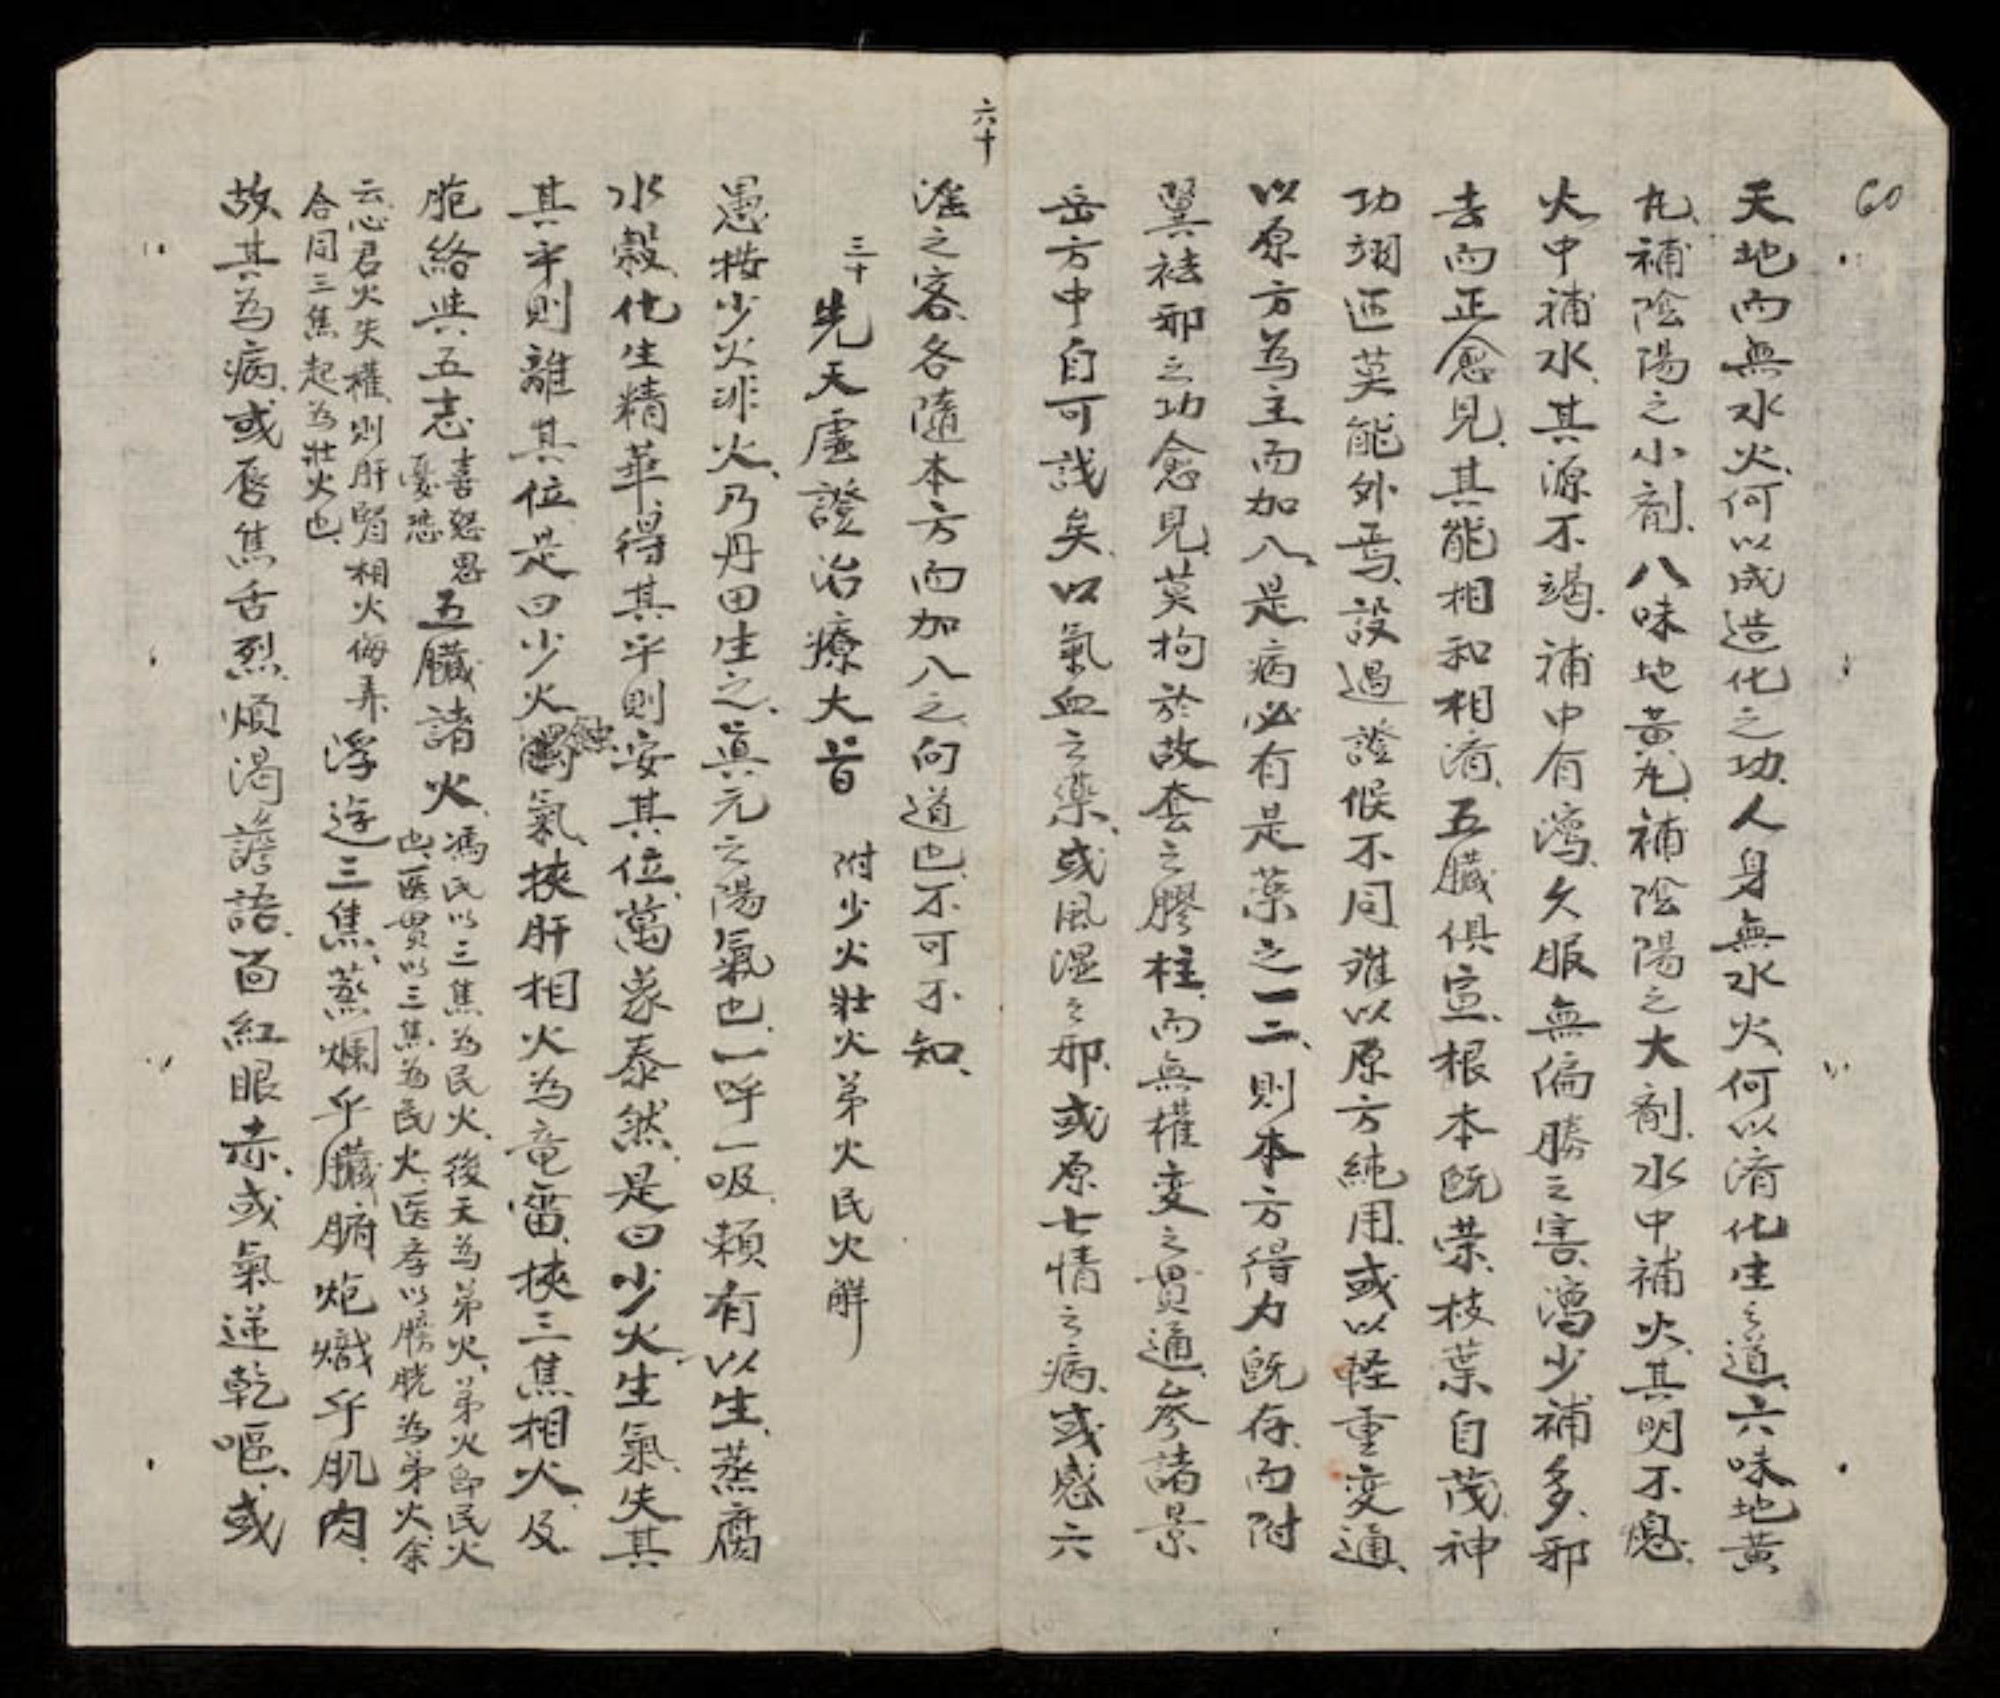 60
天地而無水火何以成造化之功人身無水火何以済化生之道六味地黃
丸補陰陽之小剤八味地黃丸補陰陽之大剤水中補火其明不熄
火中補水其源不竭補中有瀉久服無偏勝之害瀉少補多邪
去而正愈見其能相和相済五臟俱宣根本既荣枝葉自茂神
功翊運莫能外焉設過證候不同難以原方純用或以軽重変通
以原方為主而加入是病必有是薬之一二則本方得力既存而附
翼祛邪之功愈見莫拘於故套之膠柱而無權変之貫通参諸景
岳方中自可識矣以氣血之藥或風湿之邪或原七情之病或感六
六十
滛之客各隨本方而加入之向道也不可不知
三十先天虛證治療大旨 附少火壯火弟火民火解
愚按少火非火乃丹田生之眞元之陽氣也一呼一吸頼有以生蒸腐
水穀化生精華得其平則安其位萬象泰然是曰少火生氣失其
其平則離其位是曰少火蝕氣挾肝相火為竜雷挾三焦相火及
胞絡與五志喜怒思憂恐五臟諸火馮氏以三焦為民火後天為弟火弟火即民火也医貫以三焦為民火医彦以膀胱為弟火余
云心君火失權則肝腎相火侮弄合同三焦起為壯火也浮逆三焦蒸爛乎臟腑炮熾乎肌肉
故其為病或唇焦舌烈煩渴譫語面紅眼赤或氣逆乾嘔或